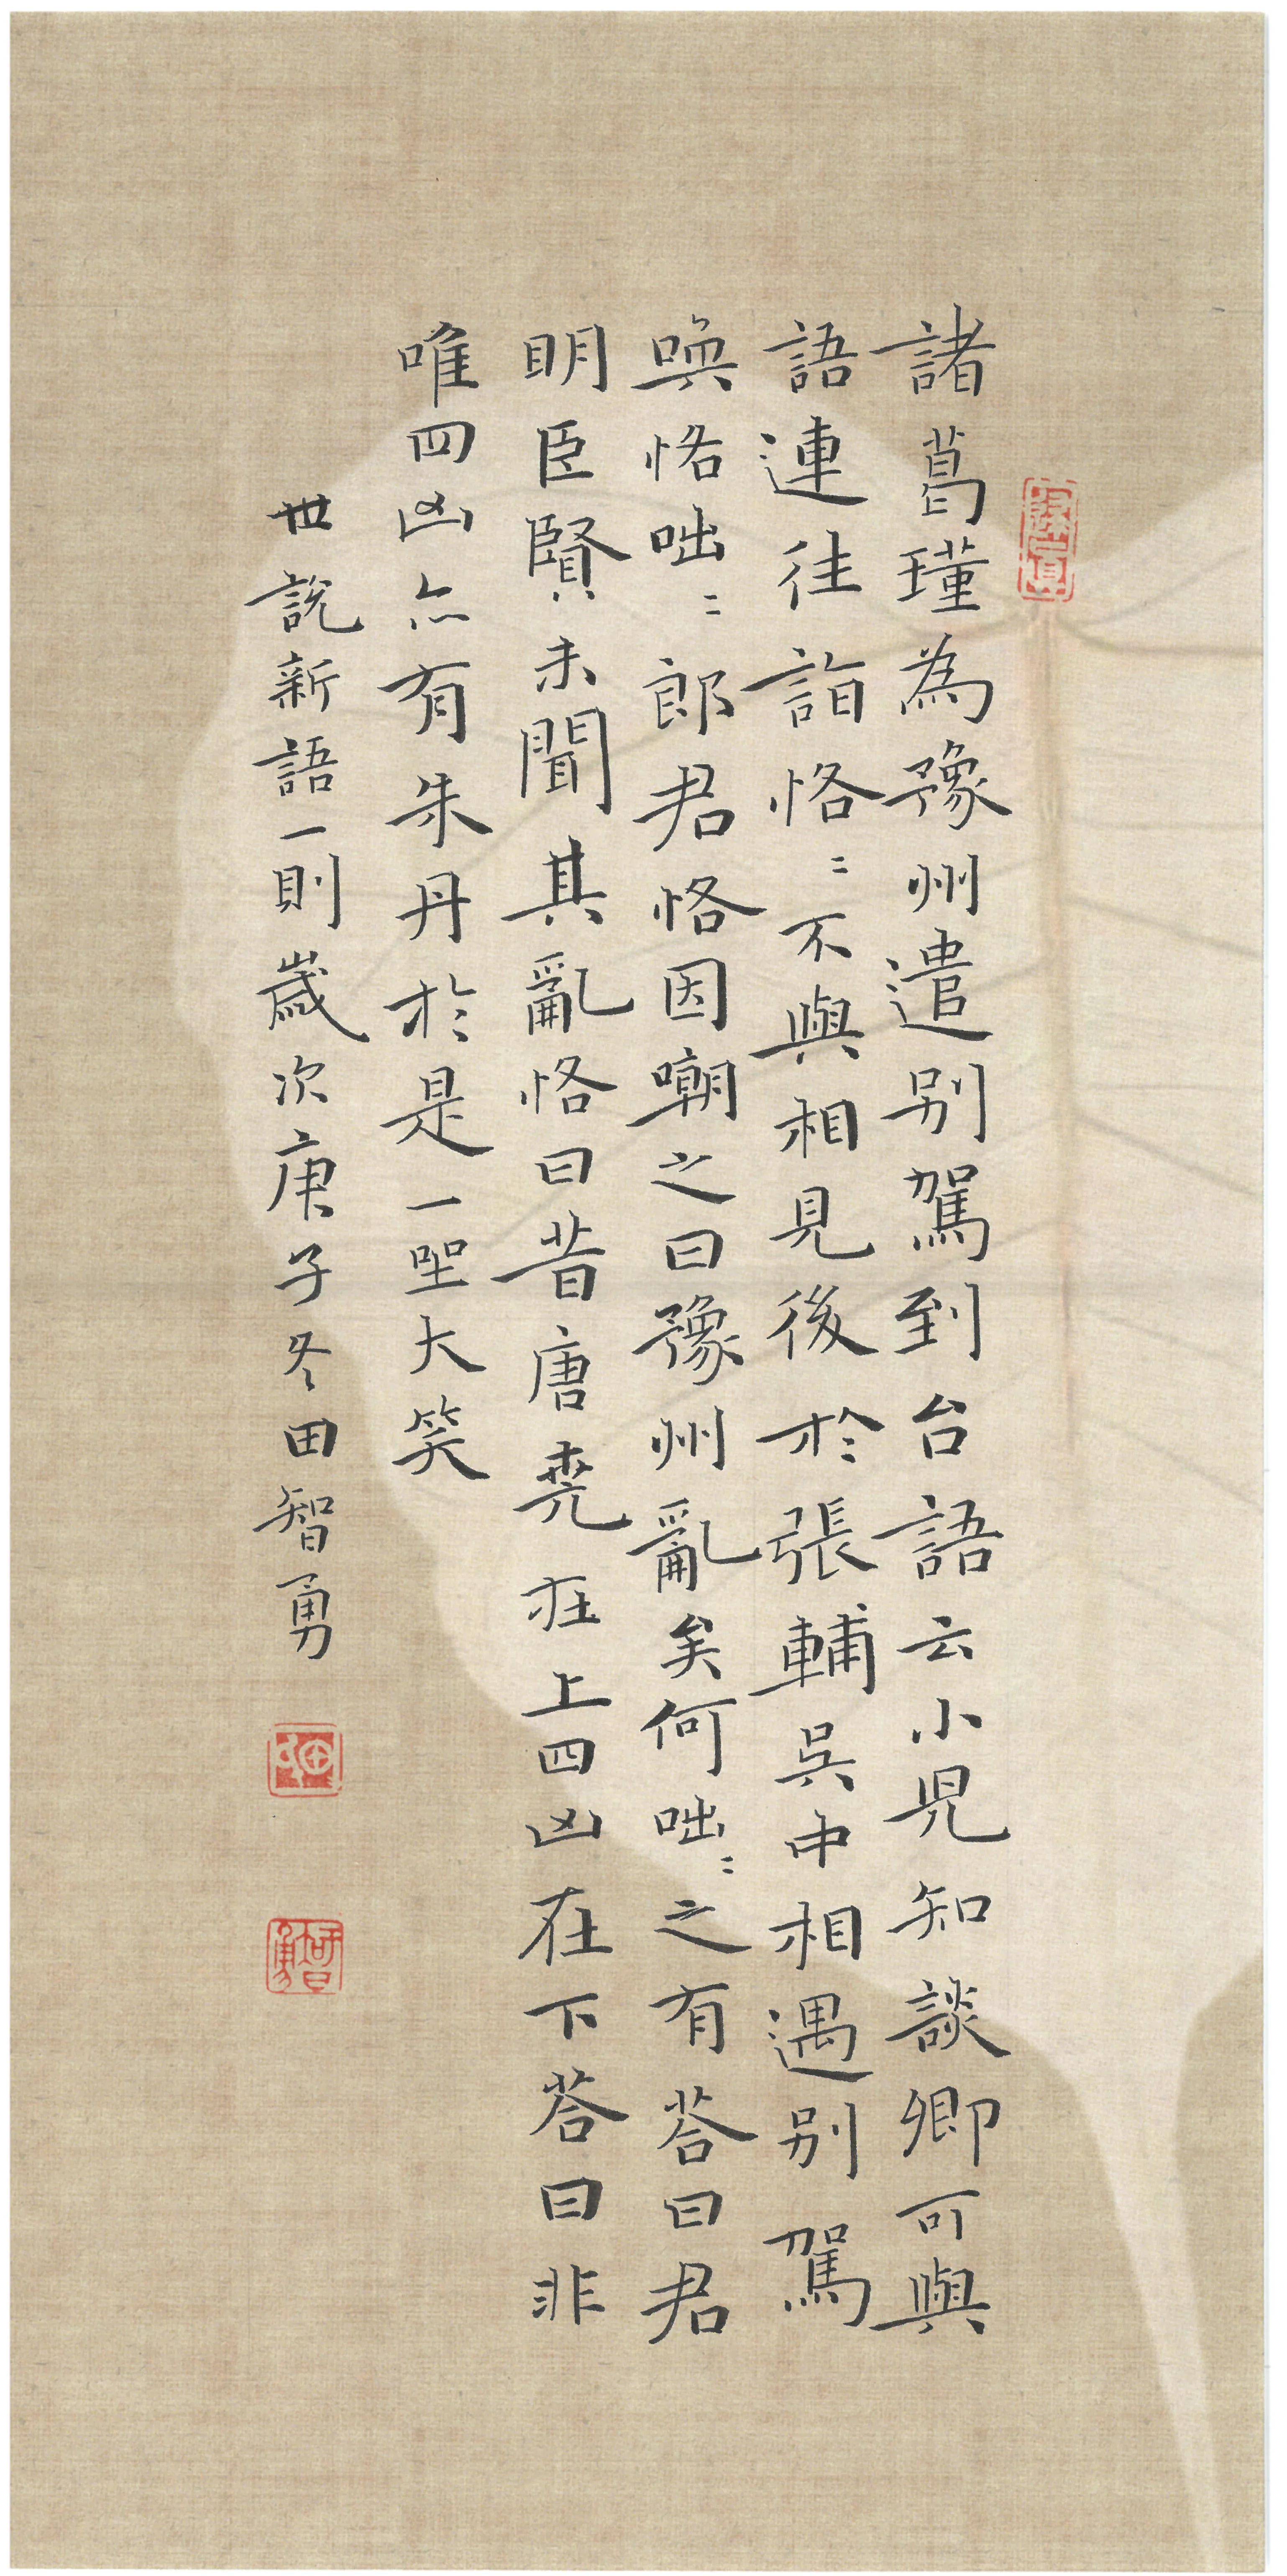 諸葛瑾為豫州遣别駕到台語云小兒知談卿可與
語連往詣恪〻不與相見後於張輔吳中相遇别駕
喚恪咄〻郎君恪因嘲之曰豫州亂矣何咄〻之有荅曰君
明臣賢未聞其亂恪曰昔唐堯在上四凶在下荅曰非
唯四凶亦有朱丹於是一坐大笑
世說新語一則歲次庚子冬田智勇